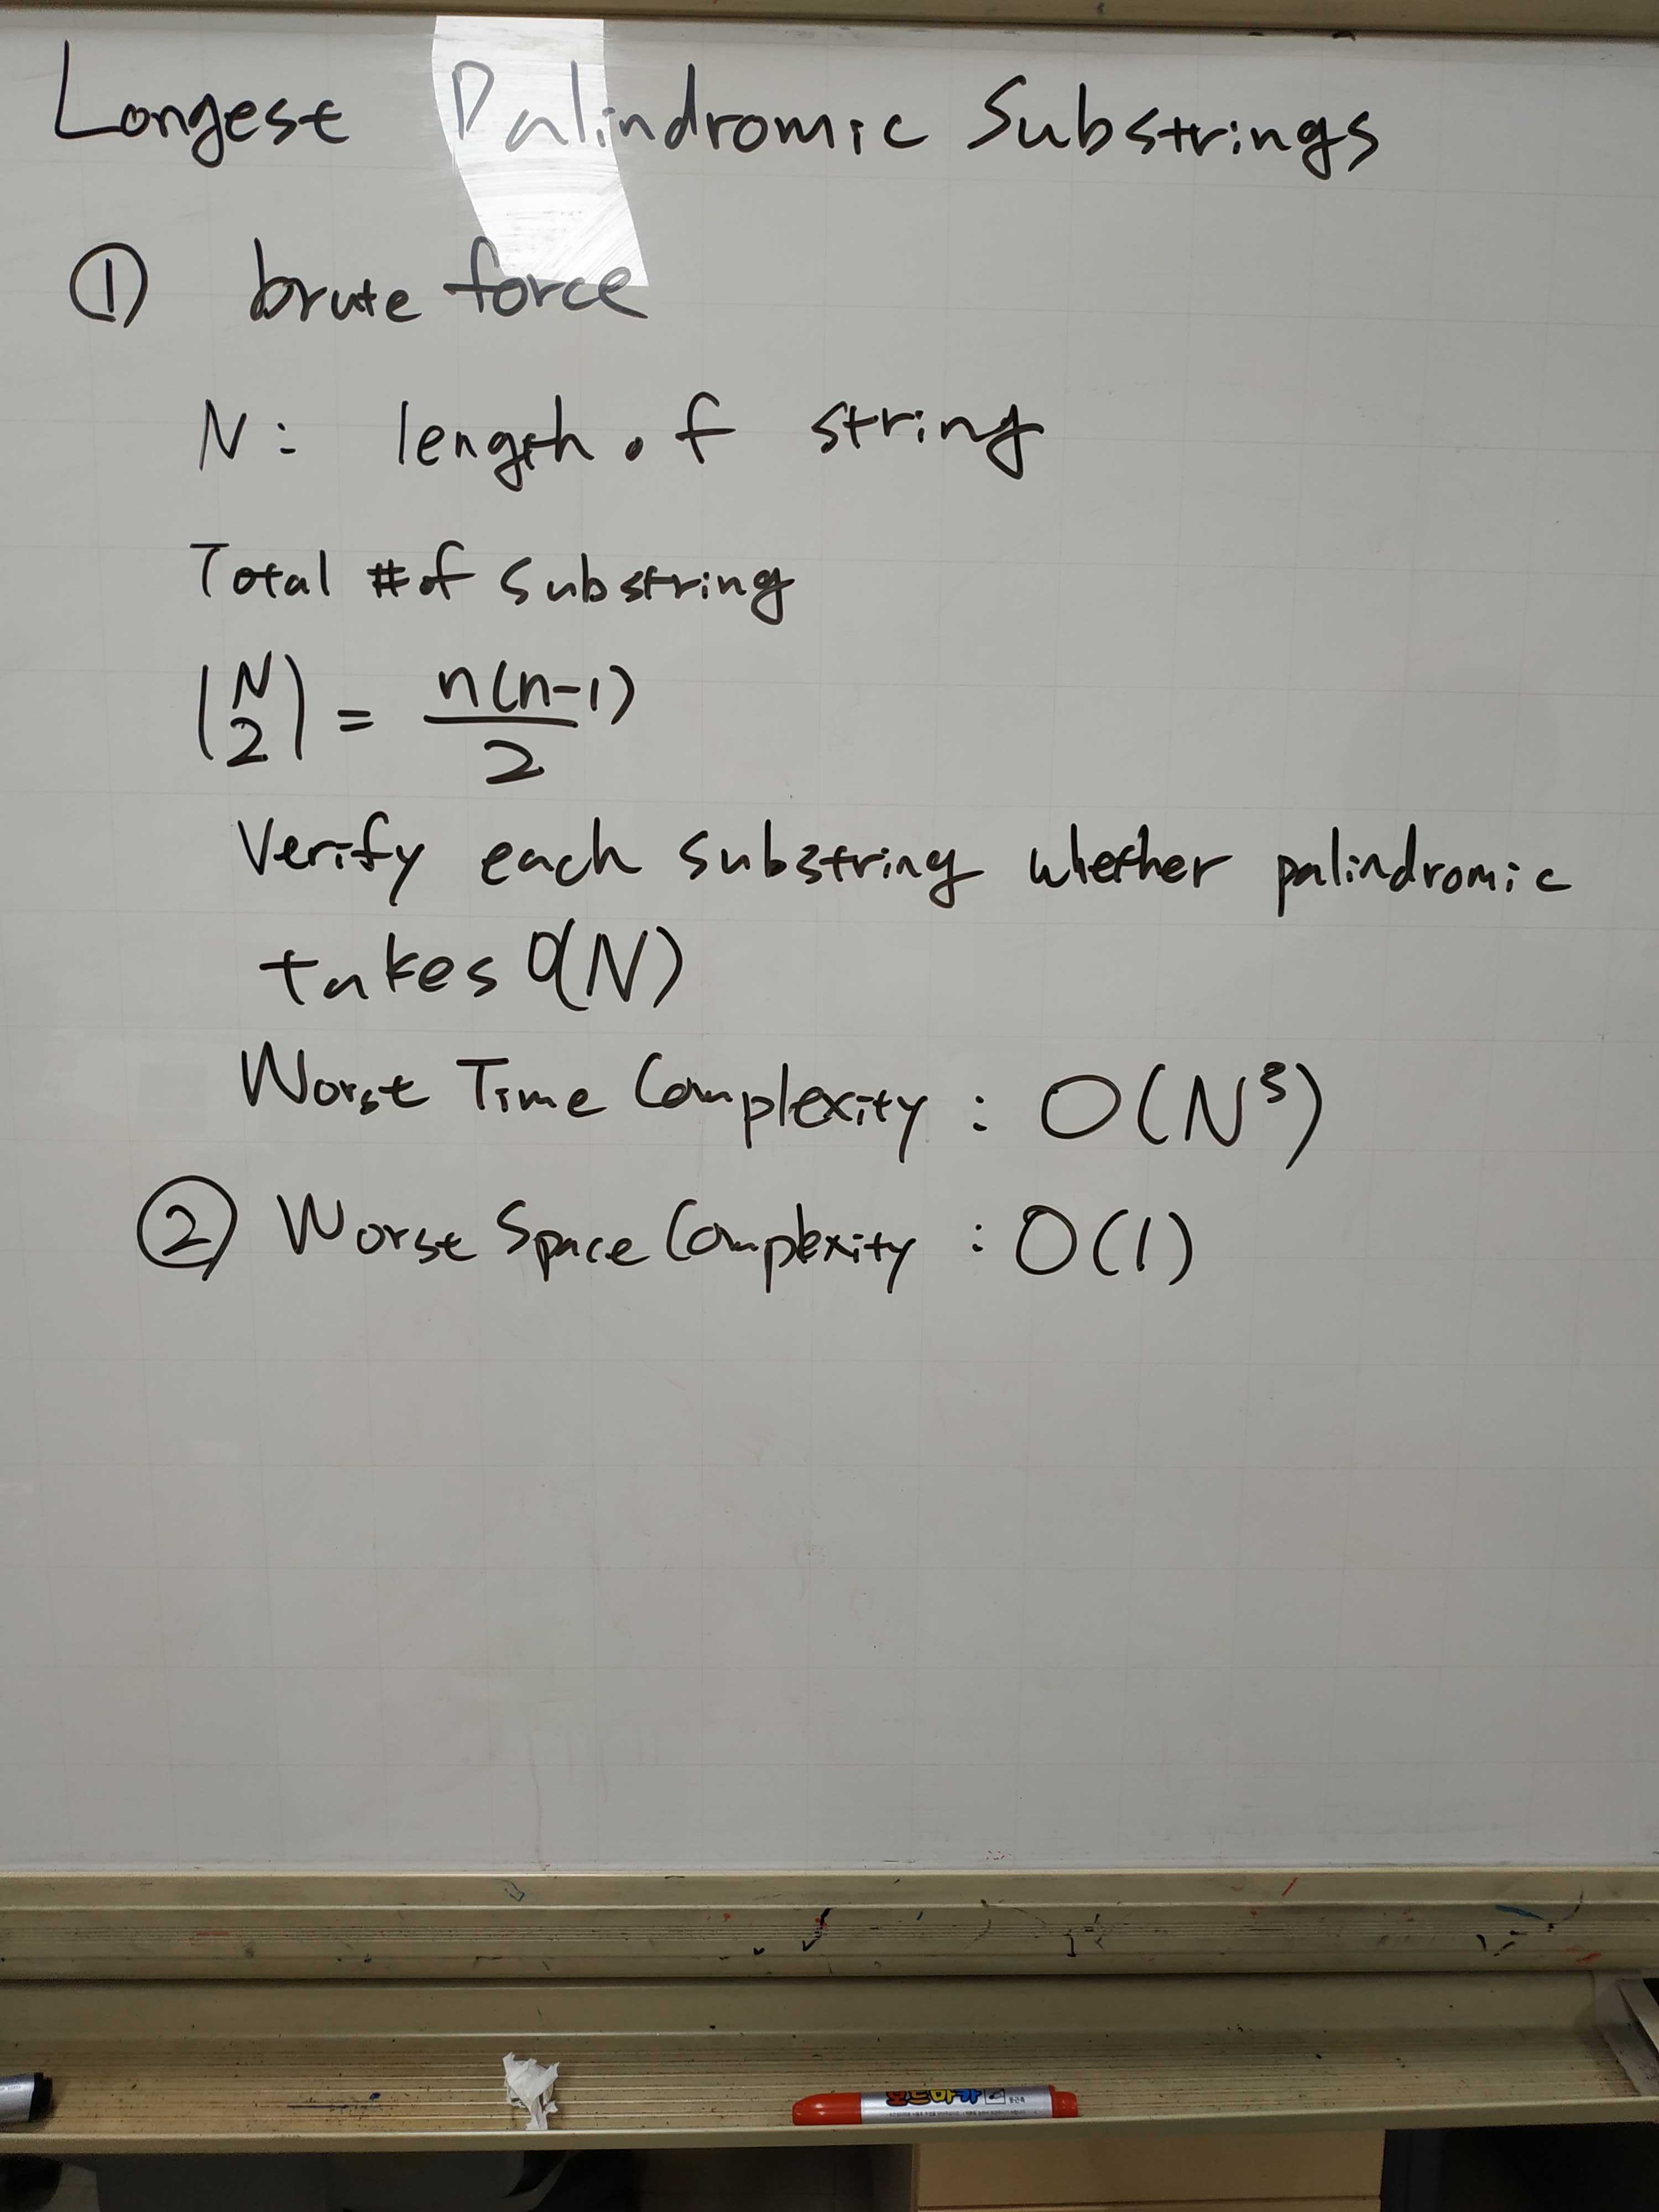 Longest Palindromic Substrings
① brute force
N: length of string
Total # of substring
(N 2) = n(n-1) / 2
Verify each substring whether palindromic
takes O(N)
Worst Time Complexity : O(N³)
② Worst Space Complexity : O(1)
보드마카